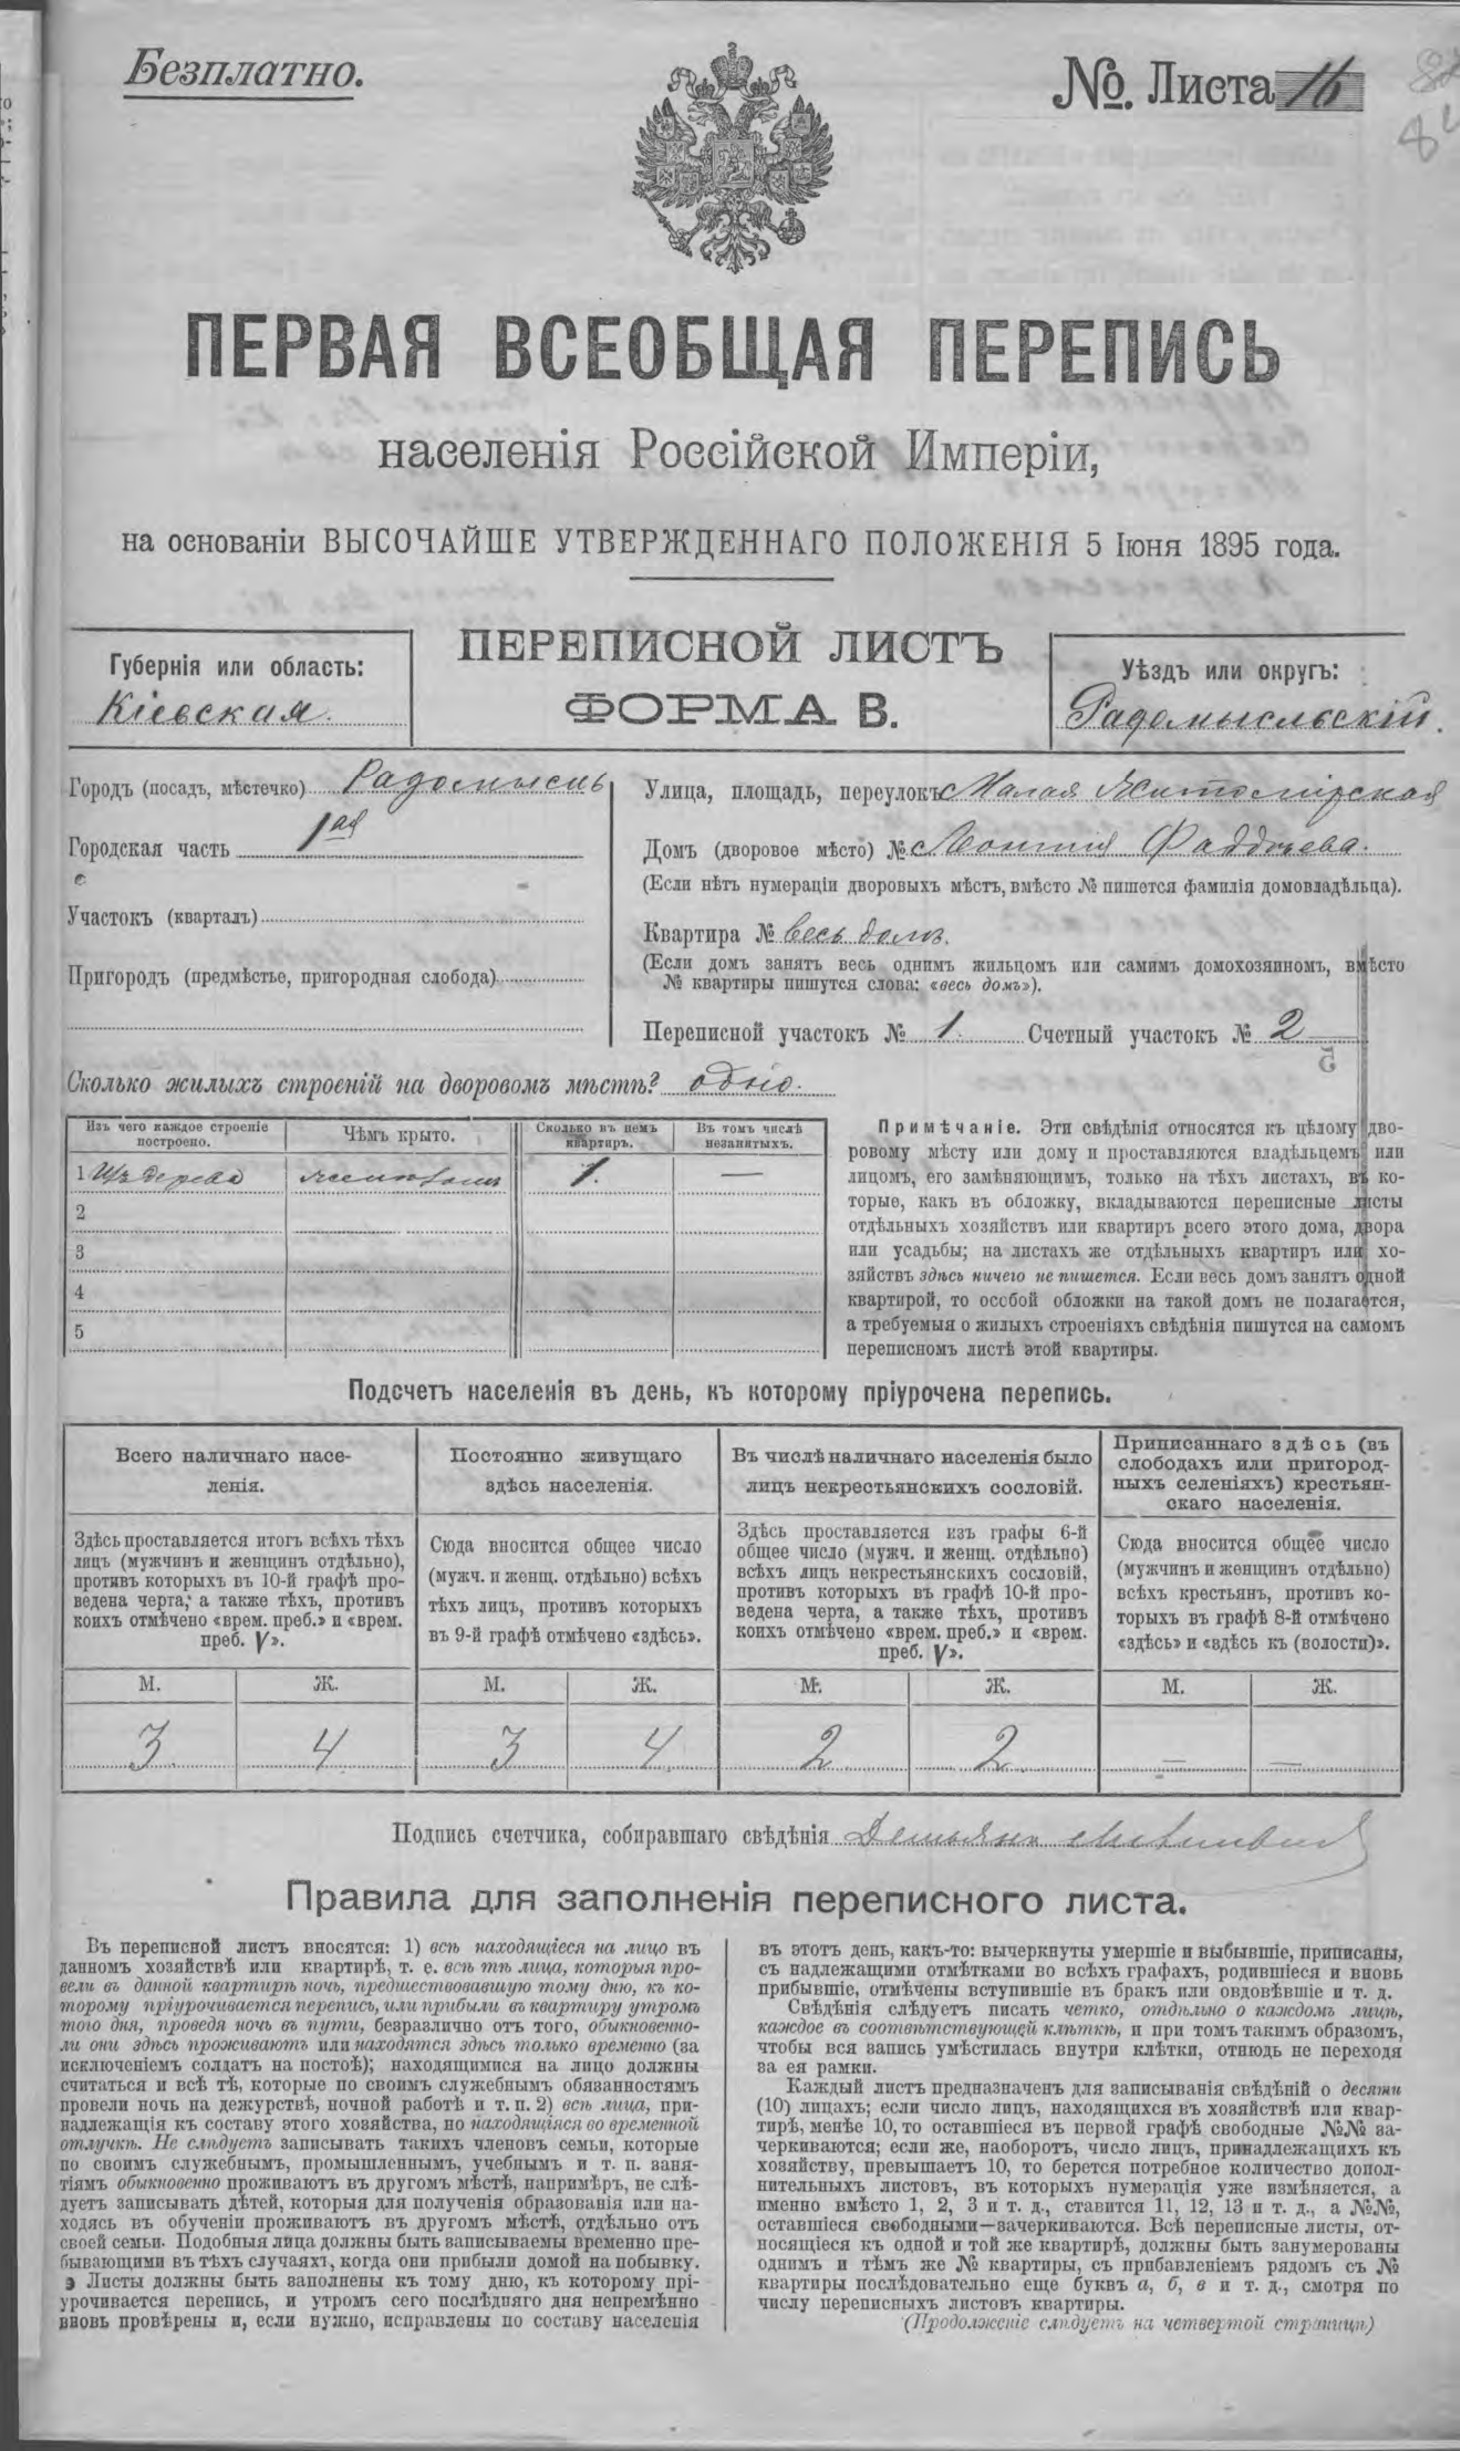 Безплатно.
№. Листа 16
ПЕРВАЯ ВСЕОБЩАЯ ПЕРЕПИСЬ
населенія Россійской Имперіи,
на основаніи ВЫСОЧАЙШЕ УТВЕРЖДЕННАГО ПОЛОЖЕНІЯ 5 Іюня 1895 года.
Губернія или область:
Кіевская.
ПЕРЕПИСНОЙ ЛИСТЪ
ФОРМА В.
Уѣздъ или округъ:
Радомысльскій.
Городъ (посадъ, мѣстечко) Радомысль
Городская часть 1ая
Участокъ (кварталъ)
Пригородъ (предмѣстье, пригородная слобода)
Улица, площадь, переулокъ Малая Житомірская
Домъ (дворовое мѣсто) № Леонтія Фаддѣева.
(Если нѣтъ нумераціи дворовыхъ мѣстъ, вмѣсто № пишется фамилія домовладѣльца).
Квартира № весь домъ.
(Если домъ занятъ весь однимъ жильцомъ или самимъ домохозяиномъ, вмѣсто
№ квартиры пишутся слова: «весь домъ»).
Переписной участокъ № 1. Счетный участокъ № 2
Сколько жилыхъ строеній на дворовомъ мѣстѣ? одно.
Изъ чего каждое строеніе построено.
Чѣмъ крыто.
Сколько въ немъ квартиръ.
Въ томъ числѣ незанятыхъ.
1 Изъ дерева 1. —
2
3
4
5
Примѣчаніе. Эти свѣдѣнія относятся къ цѣлому дво-
ровому мѣсту или дому и проставляются владѣльцемъ или
лицомъ, его замѣняющимъ, только на тѣхъ листахъ, въ ко-
торые, какъ въ обложку, вкладываются переписные листы
отдѣльныхъ хозяйствъ или квартиръ всего этого дома, двора
или усадьбы; на листахъ же отдѣльныхъ квартиръ или хо-
зяйствъ здѣсь ничего не пишется. Если весь домъ занятъ одной
квартирой, то особой обложки на такой домъ не полагается,
а требуемыя о жилыхъ строеніяхъ свѣдѣнія пишутся на самомъ
переписномъ листѣ этой квартиры.
Подсчетъ населенія въ день, къ которому пріурочена перепись.
Всего наличнаго насе-
ленія.
Здѣсь проставляется итогъ всѣхъ тѣхъ
лицъ (мужчинъ и женщинъ отдѣльно),
противъ которыхъ въ 10-й графѣ про-
ведена черта, а также тѣхъ, противъ
коихъ отмѣчено «врем. преб.» и «врем.
преб. V».
Постоянно живущаго
здѣсь населенія.
Сюда вносится общее число
(мужч. и женщ. отдѣльно) всѣхъ
тѣхъ лицъ, противъ которыхъ
въ 9-й графѣ отмѣчено «здѣсь».
Въ числѣ наличнаго населенія было
лицъ некрестьянскихъ сословій.
Здѣсь проставляется изъ графы 6-й
общее число (мужч. и женщ. отдѣльно)
всѣхъ лицъ некрестьянскихъ сословій,
противъ которыхъ въ графѣ 10-й про-
ведена черта, а также тѣхъ, противъ
коихъ отмѣчено «врем. преб.» и «врем.
преб. V».
Приписаннаго здѣсь (въ
слободахъ или пригород-
ныхъ селеніяхъ) крестьян-
скаго населенія.
Сюда вносится общее число
(мужчинъ и женщинъ отдѣльно)
всѣхъ крестьянъ, противъ ко-
торыхъ въ графѣ 8-й отмѣчено
«здѣсь» и «здѣсь къ (волости)».
М. Ж. М. Ж. М. Ж. М. Ж.
3 4 3 4 2 2 — —
Подпись счетчика, собиравшаго свѣдѣнія Демьянъ
Правила для заполненія переписного листа.
Въ переписной листъ вносятся: 1) всѣ находящіеся на лицо въ
данномъ хозяйствѣ или квартирѣ, т. е. всѣ тѣ лица, которыя про-
вели въ данной квартирѣ ночь, предшествовавшую тому дню, къ ко-
торому пріурочивается перепись, или прибыли въ квартиру утромъ
того дня, проведя ночь въ пути, безразлично отъ того, обыкновенно-
ли они здѣсь проживаютъ или находятся здѣсь только временно (за
исключеніемъ солдатъ на постоѣ); находящимися на лицо должны
считаться и всѣ тѣ, которые по своимъ служебнымъ обязанностямъ
провели ночь на дежурствѣ, ночной работѣ и т. п. 2) всѣ лица, при-
надлежащія къ составу этого хозяйства, но находящіяся во временной
отлучкѣ. Не слѣдуетъ записывать такихъ членовъ семьи, которые
по своимъ служебнымъ, промышленнымъ, учебнымъ и т. п. заня-
тіямъ обыкновенно проживаютъ въ другомъ мѣстѣ, напримѣръ, не слѣ-
дуетъ записывать дѣтей, которыя для полученія образованія или на-
ходясь въ обученіи проживаютъ въ другомъ мѣстѣ, отдѣльно отъ
своей семьи. Подобныя лица должны быть записываемы временно пре-
бывающими въ тѣхъ случаяхъ, когда они прибыли домой на побывку.
Листы должны быть заполнены къ тому дню, къ которому прі-
урочивается перепись, и утромъ сего послѣдняго дня непремѣнно
вновь провѣрены и, если нужно, исправлены по составу населенія
въ этотъ день, какъ-то: вычеркнуты умершіе и выбывшіе, приписаны,
съ надлежащими отмѣтками во всѣхъ графахъ, родившіеся и вновь
прибывшіе, отмѣчены вступившіе въ бракъ или овдовѣвшіе и т. д.
Свѣдѣнія слѣдуетъ писать четко, отдѣльно о каждомъ лицѣ,
каждое въ соотвѣтствующей клѣткѣ, и при томъ такимъ образомъ,
чтобы вся запись умѣстилась внутри клѣтки, отнюдь не переходя
за ея рамки.
Каждый листъ предназначенъ для записыванія свѣдѣній о десяти
(10) лицахъ; если число лицъ, находящихся въ хозяйствѣ или квар-
тирѣ, менѣе 10, то оставшіеся въ первой графѣ свободные №№ за-
черкиваются; если же, наоборотъ, число лицъ, принадлежащихъ къ
хозяйству, превышаетъ 10, то берется потребное количество допол-
нительныхъ листовъ, въ которыхъ нумерація уже измѣняется, а
именно вмѣсто 1, 2, 3 и т. д., ставится 11, 12, 13 и т. д., а №№,
оставшіеся свободными—зачеркиваются. Всѣ переписные листы, от-
носящіеся къ одной и той же квартирѣ, должны быть занумерованы
однимъ и тѣмъ же № квартиры, съ прибавленіемъ рядомъ съ №
квартиры послѣдовательно еще буквъ а, б, в и т. д., смотря по
числу переписныхъ листовъ квартиры.
(Продолженіе слѣдуетъ на четвертой страницѣ)